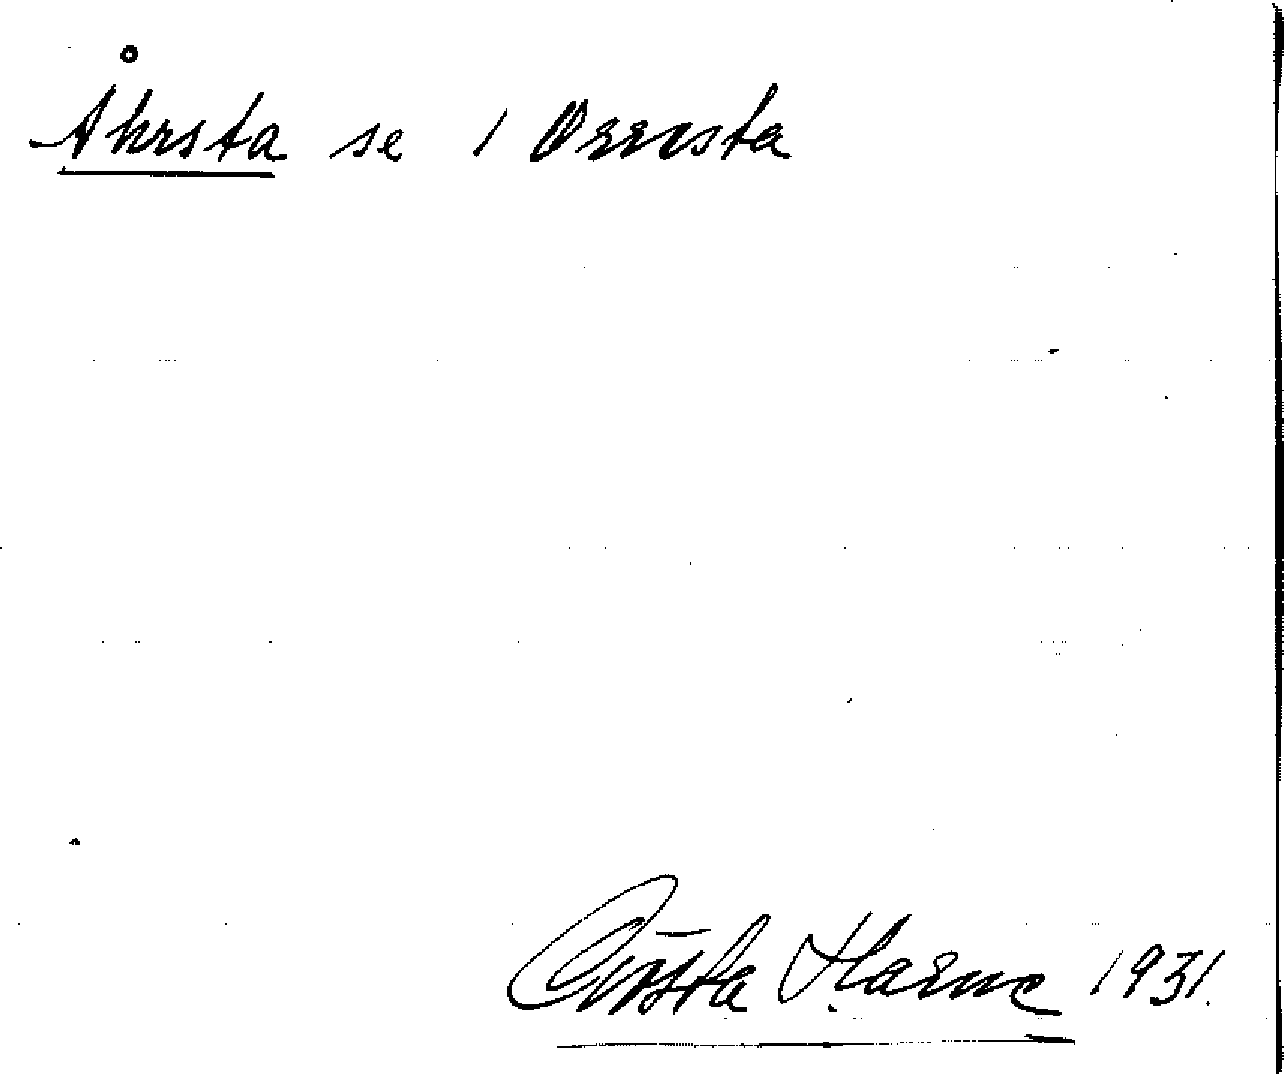 Åhrsta se 1 Orresta
Gösta Harne 1931.